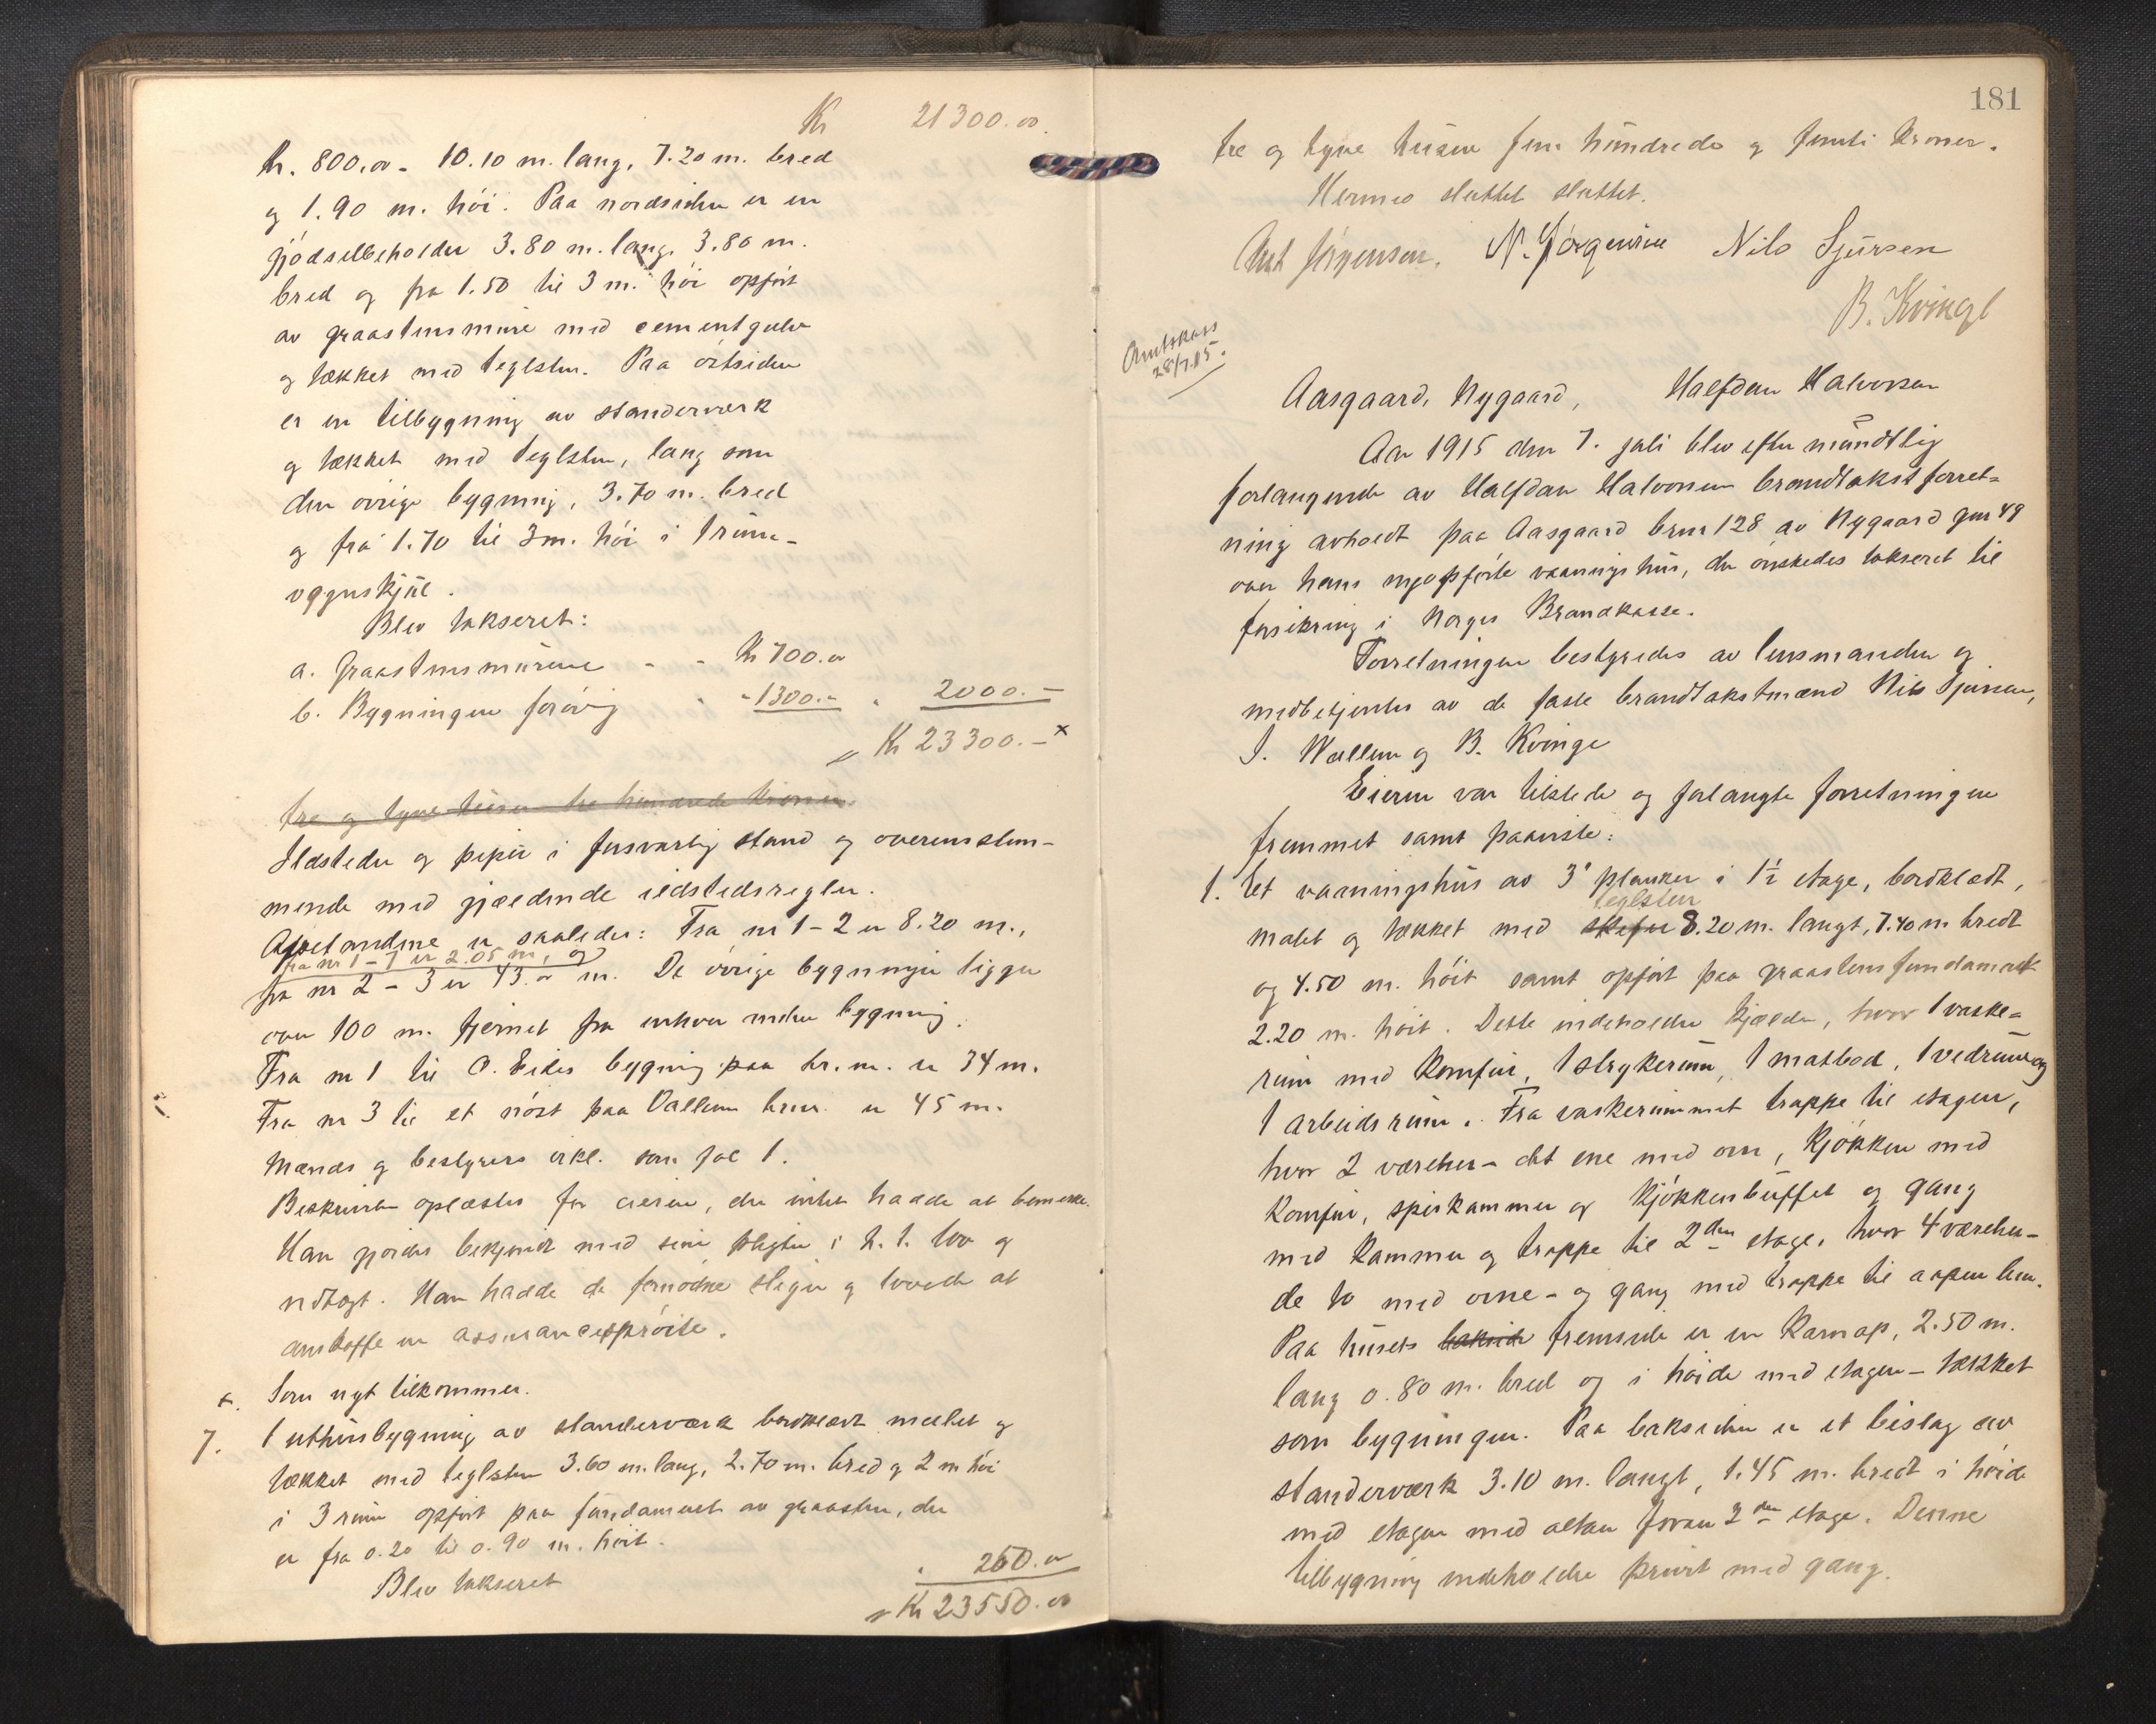 Kr 21300.00
kr. 800.00 - 10.10 m. lang, 7.20 m. bred
og 1.90 m. höi. Paa nordsiden er en
gjödselbeholder 3.80 m. lang, 3.80 m.
bred og fra 1.50 til 3 m. höi opfört
av graastensmure med cementgulv
og tækket med teglsten. Paa östsiden
er en tilbygning av standerværk
og tækket med teglsten, lang som
den övrige bygning, 3.70 m. bred
og fra 1.70 til 3 m. höi i 1 rum -
vognskjul.
Blev takseret:
a. Graastensmurene - - Kr 700.00
b. Bygningen forövrig - - 1300.- - 2000.-
Kr 23300.- x
tre og tyve tusen tre hundrede kroner.
Ildsteder og piper i forsvarlig stand og overensstem-
mende med gjældende ildstedsregler.
Avstandene er saaledes: Fra nr 1 - 2 er 8.20 m.,
fra nr 1 - 7 er 2.05 m, og
fra nr 2 - 3 er 43.00 m. De övrige bygninger ligger
over 100 m. fjernet fra enhver anden bygning.
Fra nr 1 til O. Eides bygning paa br. nr. er 34 m.
Fra nr 3 til et nöst paa Vallem brnr. er 45 m.
Mænds og bestyrers erkl. som fol 1.
Beskrivelsen oplæstes for eieren, der intet hadde at bemerke.
Han gjordes bekjendt med sine pligter i h. t. lov og
vedtægt. Han hadde de fornödne stiger og lovede at
anskaffe en assurancespröite.
x. Som nyt tilkommer.
7. 1 uthusbygning av standerværk bordklædt malet og
tækket med teglsten 3.60 m. lang, 2.70 m. bred og 2 m höi
i 3 rum opfört paa fundament av graasten, der
er fra 0.20 til 0.90 m. höit.
Blev takseret - 250.00
Kr 23550.00
181
tre og tyve tusen fem hundrede og femti kroner.
Hermed sluttet sluttet.
Jörgensen. N. Jörgensen Nils Sjursen
B. Kvinge
Amtskass
28/7.15.
Aasgaard, Nygaard, Halfdan Halvorsen
Aar 1915 den 7. juli blev efter mundtlig
forlangende av Halfdan Halvorsen brandtakstforret-
ning avholdt paa Aasgaard brnr 128 av Nygaard gnr 49
over hans nyopförte vaaningshus, der önskedes takseret til
forsikring i Norges Brandkasse.
Forretningen bestyredes av lensmanden og
medbetjentes av de faste brandtakstmænd Nils Sjursen,
J. Wallem og B. Kvinge
Eieren var tilstede og forlangte forretningen
fremmet samt paaviste:
1. Et vaaningshus av 3" planker i 1½ etage, bordklædt,
teglsten
malet og tækket med skifer 8.20 m. langt, 7.40 m bredt
og 4.50 m. höit samt opfört paa graastensfundament
2.20 m. höit. Dette indeholder kjælder, hvor 1 vaske-
rum med komfur, 1 strykerum, 1 matbod, 1 vedrum og
1 arbeidsrum. Fra vaskerummet trappe til etagen,
hvor 2 værelser - det ene med ovn, kjökken med
komfur, spiskammer og kjökkenbuffet og gang
med kammer og trappe til 2den etage, hvor 4 værelser -
de to med ovne - og gang med trappe til aapen lem.
Paa husets bakside fremside er en karnap, 2.50 m.
lang 0.80 m. bred og i höide med etagen - tækket
som bygningen. Paa baksiden er et bislag av
standerværk 3.10 m. langt, 1.45 m. bredt i höide
med etagen med altan foran 2den etage. Denne
tilbygning indeholder privet med gang.